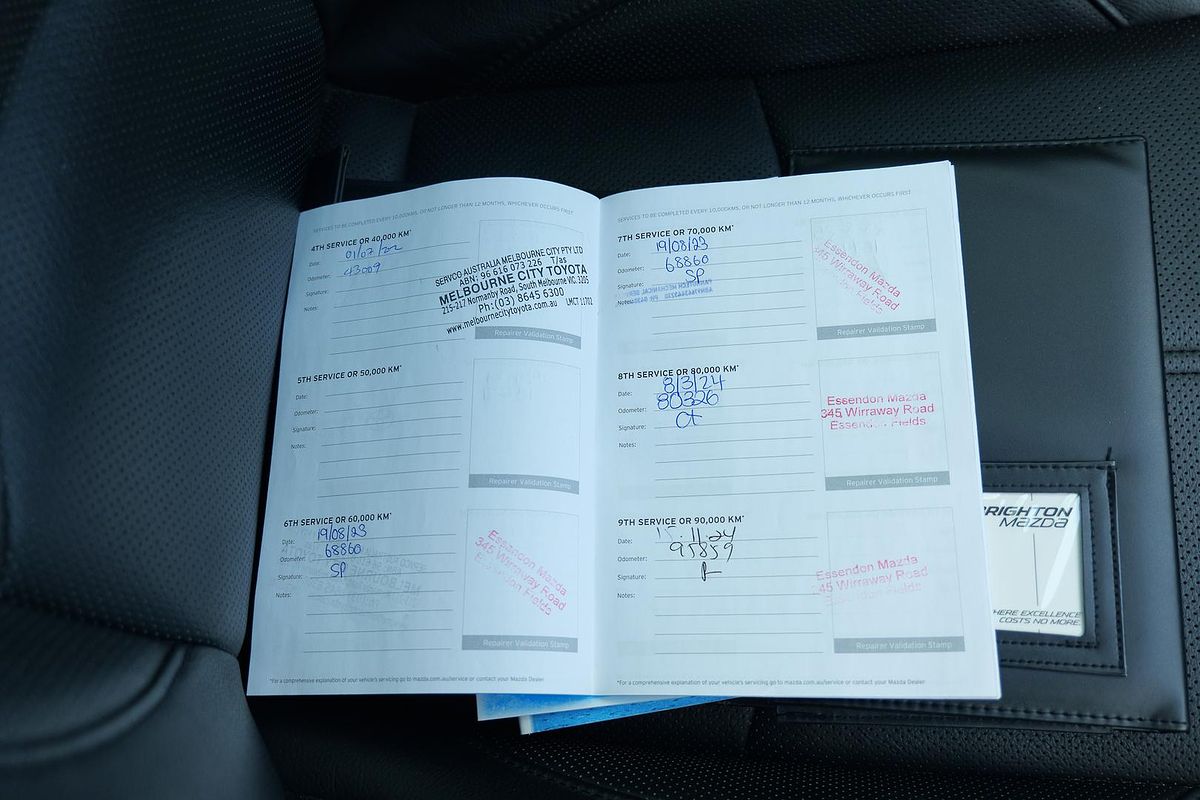 SERVICES TO BE COMPLETED EVERY 10,000KMS, OR NOT LONGER THAN 12 MONTHS, WHICHEVER OCCURS FIRST
4TH SERVICE OR 40,000 KM*
Date: 01/07/22
Odometer: 43009
Signature:
SERVCO AUSTRALIA MELBOURNE CITY PTY LTD
ABN: 96 616 073 226 T/as
MELBOURNE CITY TOYOTA
215-217 Normanby Road, South Melbourne VIC. 3205
Ph:(03) 8645 6300
www.melbournecitytoyota.com.au LMCT 11702
Repairer Validation Stamp
5TH SERVICE OR 50,000 KM*
Date:
Odometer:
Signature:
Notes:
Repairer Validation Stamp
6TH SERVICE OR 60,000 KM*
Date: 19/08/23
Odometer: 68860
Signature: SP
Notes:
Essendon Mazda
345 Wirraway Road
Essendon Fields
Repairer Validation Stamp
*For a comprehensive explanation of your vehicle's servicing go to mazda.com.au/service or contact your Mazda Dealer
SERVICES TO BE COMPLETED EVERY 10,000KMS, OR NOT LONGER THAN 12 MONTHS, WHICHEVER OCCURS FIRST
7TH SERVICE OR 70,000 KM*
Date: 19/08/23
Odometer: 68860
Signature: SP
Notes:
Essendon Mazda
345 Wirraway Road
Essendon Fields
Repairer Validation Stamp
8TH SERVICE OR 80,000 KM*
Date: 8/3/24
Odometer: 80326
Signature: Ct
Notes:
Essendon Mazda
345 Wirraway Road
Essendon Fields
Repairer Validation Stamp
9TH SERVICE OR 90,000 KM*
Date: 15.11.24
Odometer: 95859
Signature:
Notes:
Essendon Mazda
345 Wirraway Road
Essendon Fields
Repairer Validation Stamp
*For a comprehensive explanation of your vehicle's servicing go to mazda.com.au/service or contact your Mazda Dealer
BRIGHTON
MAZDA
HERE EXCELLENCE
COSTS NO MORE.